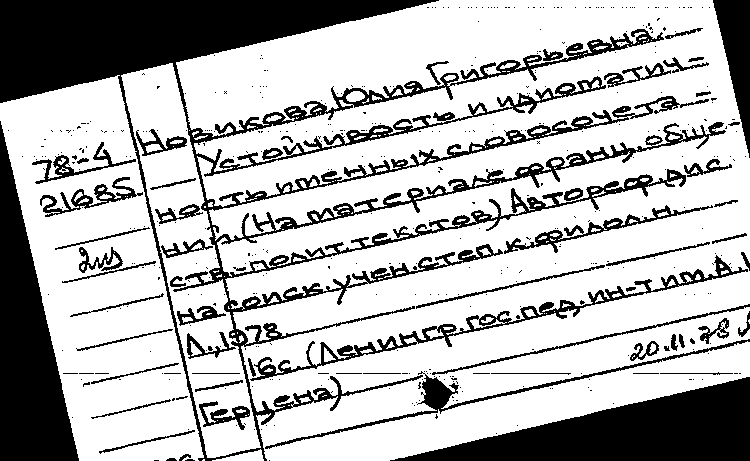 Новикова, Юлия Григорьевна.
Устойчивость и идиоматич-
78-4
21685
ность именных словосочета-
ний. (На материале франц. обще-
2из
ств.-полит. текстов). Автореф. дис.
на соиск. учен. степ. к. филол. н.
Л., 1978
16с. (Ленингр. гос. пед. ин-т им. А.И.
Герцена)
20.11.78